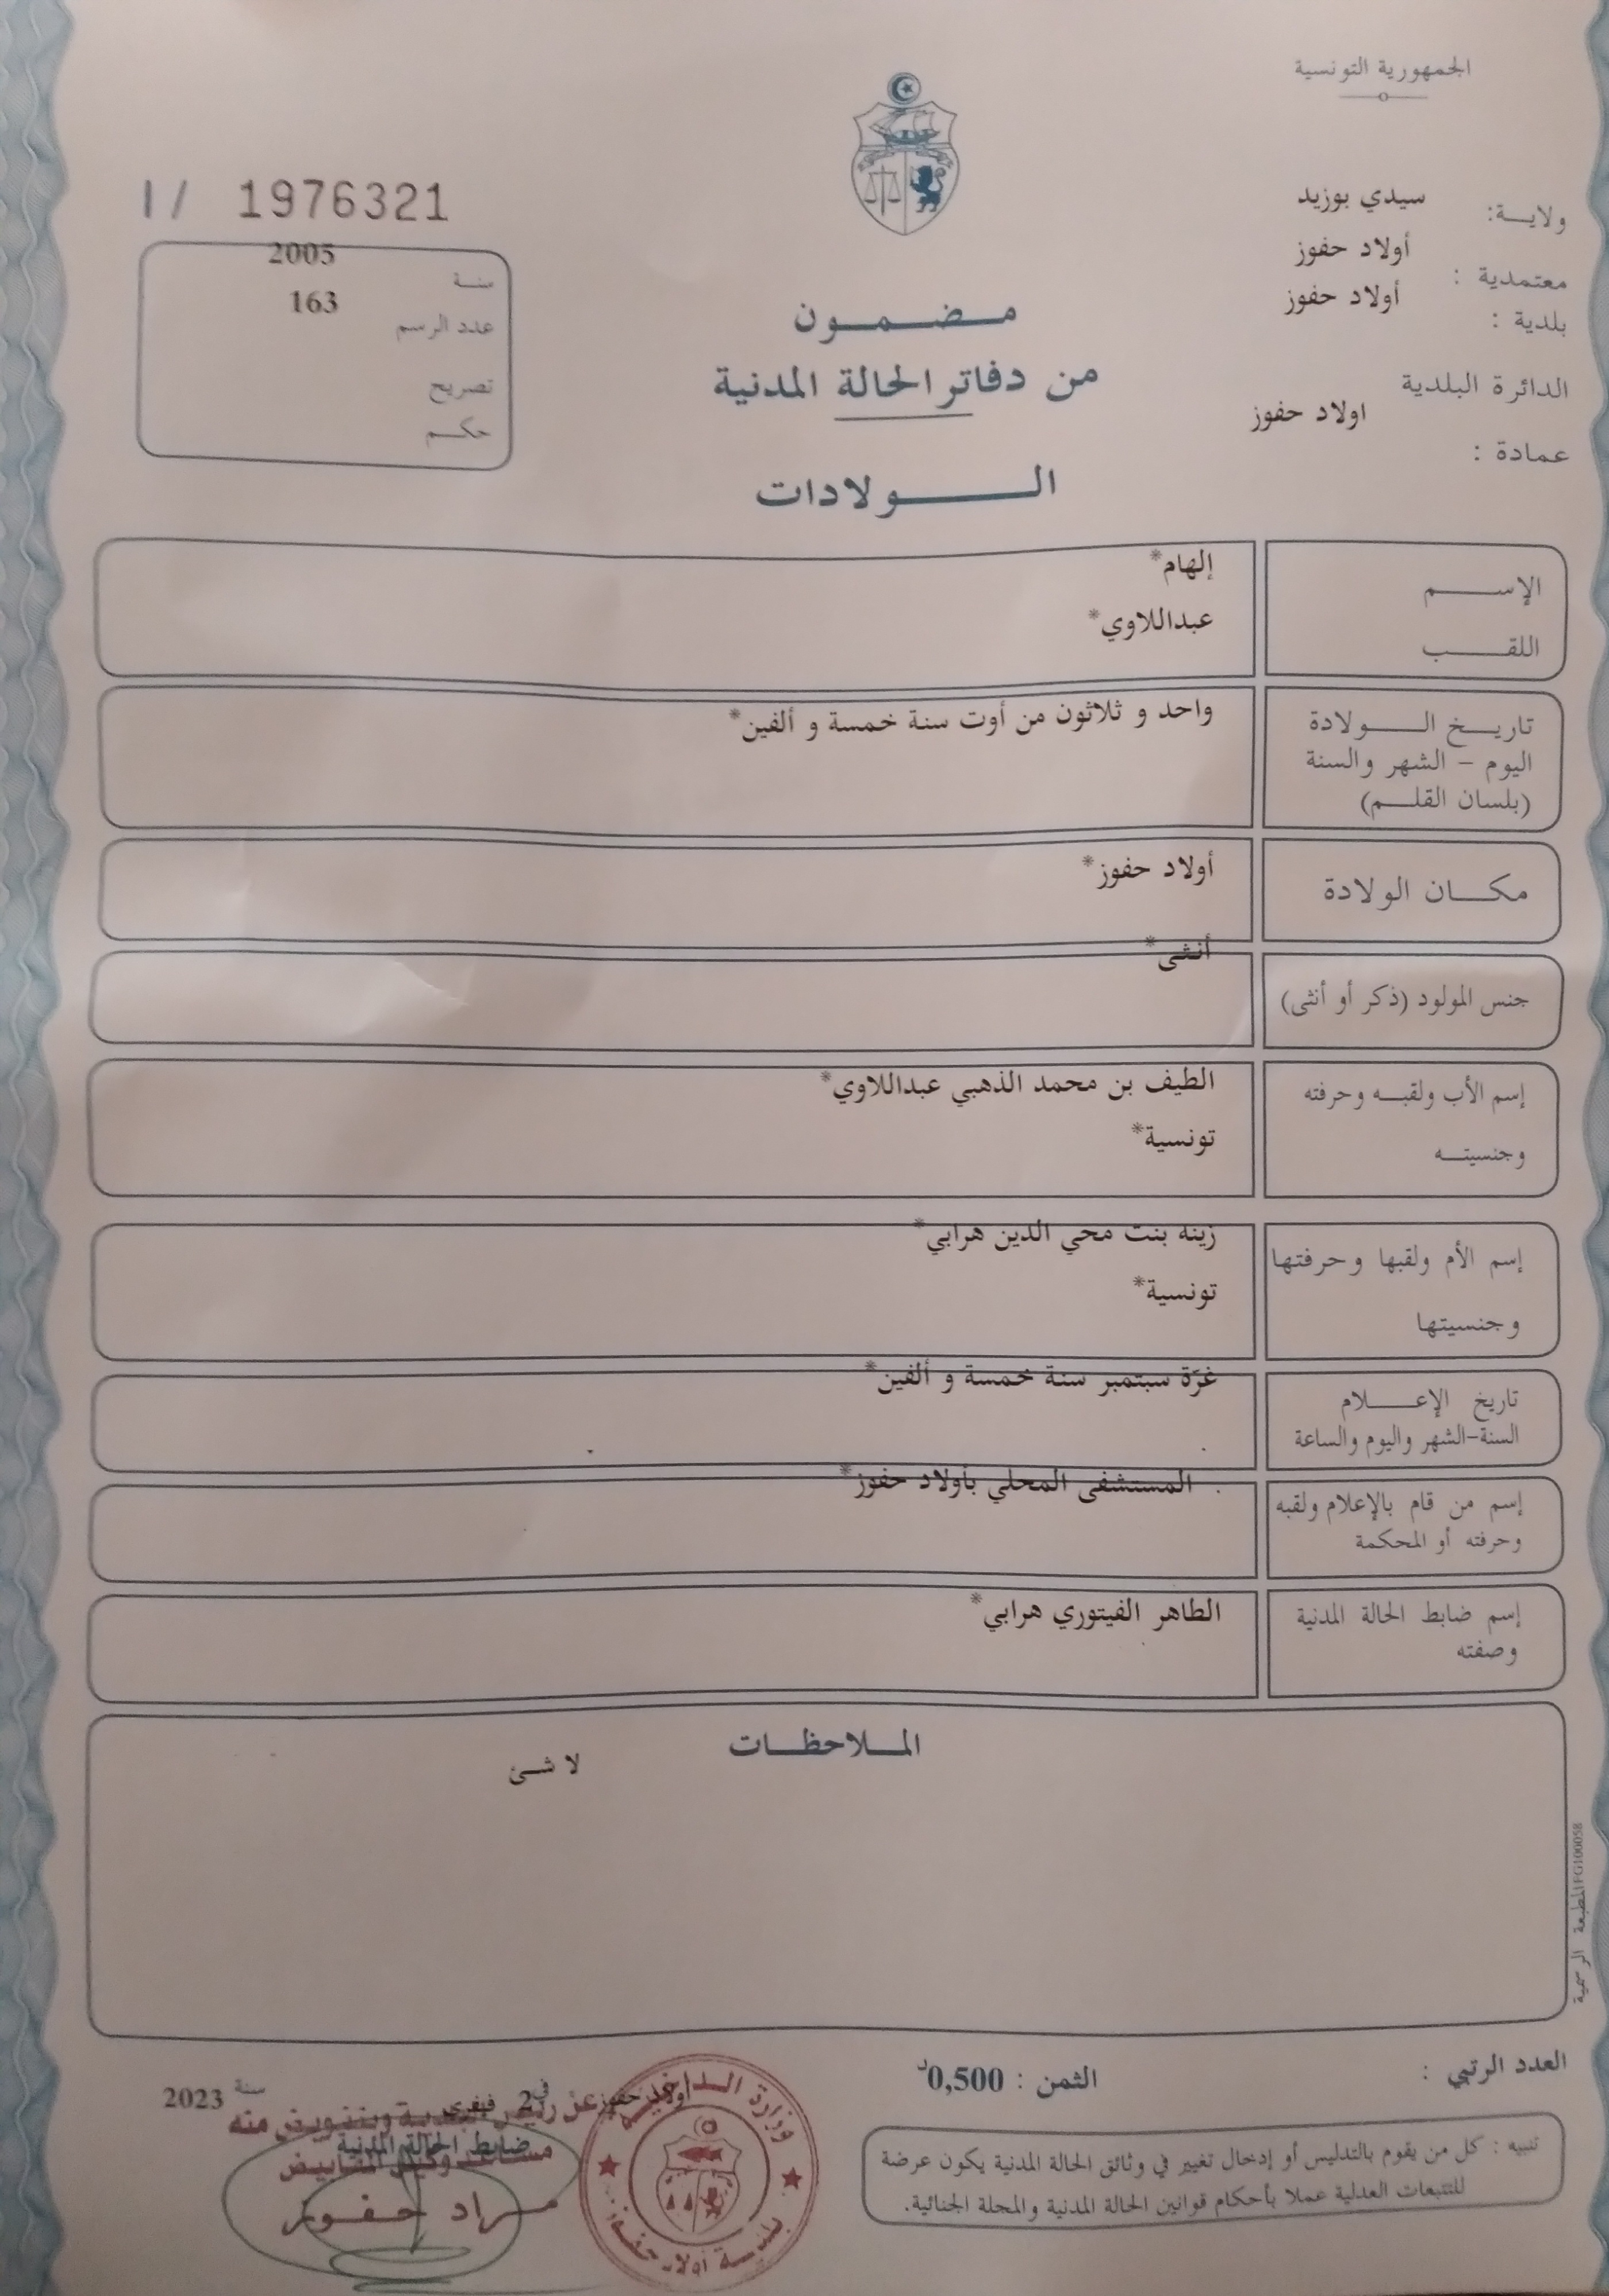 الجمهورية التونسية
ولايـــة: سيدي بوزيد
معتمدية : أولاد حفوز
بلدية : أولاد حفوز
الدائرة البلدية
اولاد حفوز
عمادة :
I/ 1976321
سنـة 2005
عدد الرسم 163
تصريح
حكـــم
مـــضـــمـــون
من دفاتر الحالة المدنية
الـــــولادات
الإســـــم إلهام*
اللقـــــب عبداللاوي*
تاريـــخ الـــــولادة واحد و ثلاثون من أوت سنة خمسة و ألفين*
اليوم – الشهر والسنة
(بلسان القلـــم)
مكـــان الولادة أولاد حفوز*
جنس المولود (ذكر أو أنثى) أنثى*
إسم الأب ولقبـــه وحرفته الطيف بن محمد الذهبي عبداللاوي*
وجنسيتـــه تونسية*
إسم الأم ولقبها وحرفتها زينه بنت محي الدين هرابي*
وجنسيتها تونسية*
تاريخ الإعـــــلام غرّة سبتمبر سنة خمسة و ألفين*
السنة-الشهر واليوم والساعة
إسم من قام بالإعلام ولقبه المستشفى المحلي بأولاد حفوز*
وحرفته أو المحكمة
إسم ضابط الحالة المدنية الطاهر الفيتوري هرابي*
وصفته
المـــلاحظـــات
لا شـئ
المطبعة الرسمية FG100058
العدد الرتبي :
الثمن : 0,500د
تنبيه : كل من يقوم بالتدليس أو إدخال تغيير في وثائق الحالة المدنية يكون عرضة
للتتبعات العدلية عملا بأحكام قوانين الحالة المدنية والمجلة الجنائية.
أولاد حفوز في 2 فيفري سنة 2023
عن رئيس البلدية وبتفويض منه
ضابط الحالة المدنية
مـــراد حـفـــوز
وزارة الـداخلية
بلديـــة أولاد حفوز